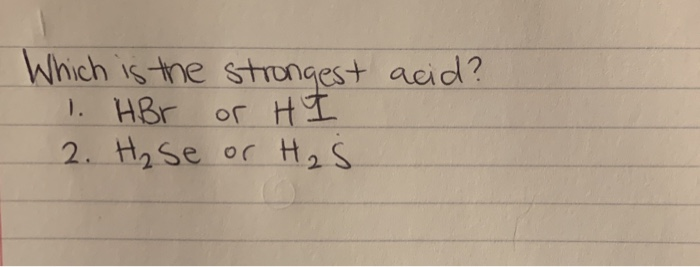 Which is the strongest acid?
1. HBr or HI
2. H₂Se or H₂S